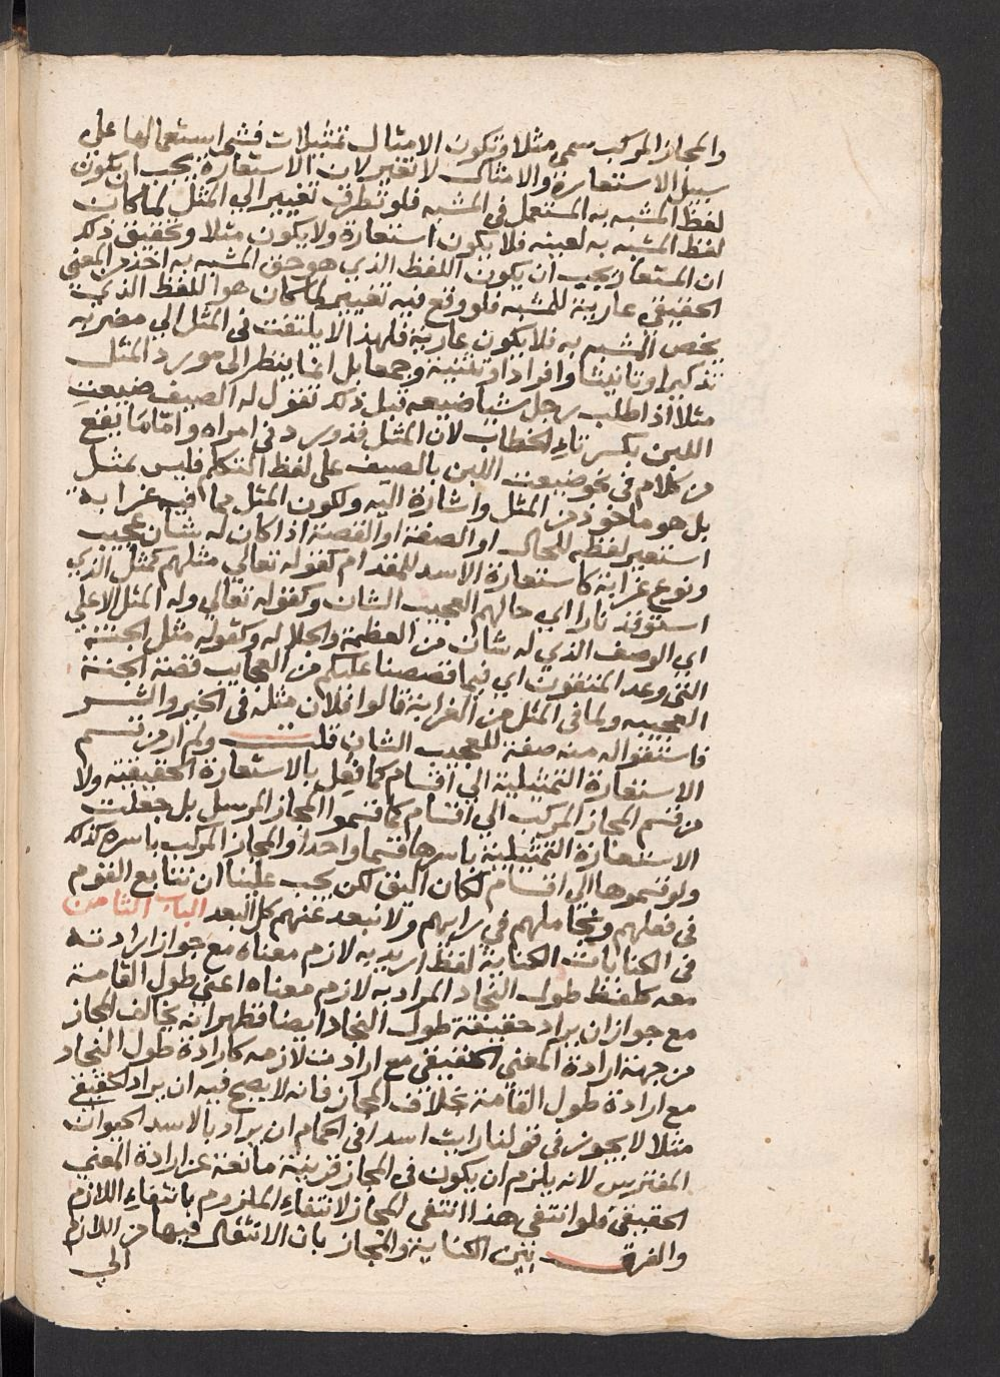 والمجاز المركب سمي مثلا وتكون الامثال تمثيلات فشى استعمالها على
سبيل الاستعارة والامثال لا تغير لان الاستعارة يجب ان يكون
لفظ المشبه به المستعمل في المشبه فلو تطرق تغيير الي المثل لما كان
لفظ المشبه به لعينه فلا يكون استعارة ولا يكون مثلا وتحقيق ذلك
ان المستعار يجب ان يكون اللفظ الذي هو حق المشبه به اخذ من المعني
الحقيقي عارية للمشبه فلو وقع فيه تغيير لما كان هو اللفظ الذي
يخص المشبه به فلا يكون عارية فلهذا لا يلتفت في المثل الي مضربه
تذكيرا وتانيثا وافرادا وتثنية وجمعا بل انما ينظر الى مورد المثل
مثلا اذا طلب رجل شيا ضيعه قبل ذلك تقول له الصيف ضيعت
اللبن بكسر تاء الخطاب لان المثل قد ورد في امراه واما ما يقع
من كلام في نحو ضيعت اللبن بالصيف على لفظ التكلم فليس بمثل
بل هو ماخوذ من المثل واشارة اليه ولكون المثل مما فيه غرابة
استعير لفظه للحال او الصفة او القصة اذا كان له شان عجيب
ونوع غرابة كاستعارة الاسد للمقدام كقوله تعالي مثلهم كمثل الذي
استوقد نارا اي حالهم العجيب الشان وكقوله تعالي وله المثل الاعلي
اي الوصف الذي له شان من العظمة والجلاله وكقوله مثل الجنة
التي وعد المتقون اي فيما قصصنا عليكم من العجايب قصة الجنة
العجيبه ولما في المثل من الغرابة قالوا فلان مثلة في الخير والشر
فاستقوا له منه صفة للعجيب الشان قلت ولم ار من قسم
الاستعارة التمثيلية الي اقسام كما فعل بالاستعارة الحقيقية ولا
من قسم المجاز المركب الي اقسام كما قسموا المجاز المرسل بل جعلت
الاستعارة التمثيلية باسرها قسما واحدا والمجاز المركب باسره كذلك
ولو قسموها الي اقسام لكان اليق لكن يجب علينا ان نتابع القوم
في فعلهم ونجاملهم في رايهم ولا نبعد عنهم كل البعد الباب الثامن
في الكنايات الكناية لفظ اريد به لازم معناه مع جواز ارادته
معه كلفظ طول النجاد المراد به لازم معناه اعني طول القامة
مع جواز ان يراد حقيقة طول النجاد ايضا فظهر انه يخالف المجاز
من جهة ارادة المعني الحقيقي مع ارادت لازمه كارادة طول النجاد
مع ارادة طول القامة بخلاف المجاز فانه لا يصح فيه ان يراد الحقيقي
مثلا لا يجوز في قولنا رايت اسدا في الحمام ان يراد بالاسد الحيوان
المفترس لانه يلزم ان يكون في المجاز قرينة مانعة عن ارادة المعني
الحقيقي فلو انتفي هذا انتفي المجاز لانتفاء الملزوم بانتفاء اللازم
والفرق بين الكناية والمجاز بان الانتقال فيها من اللازم
الي